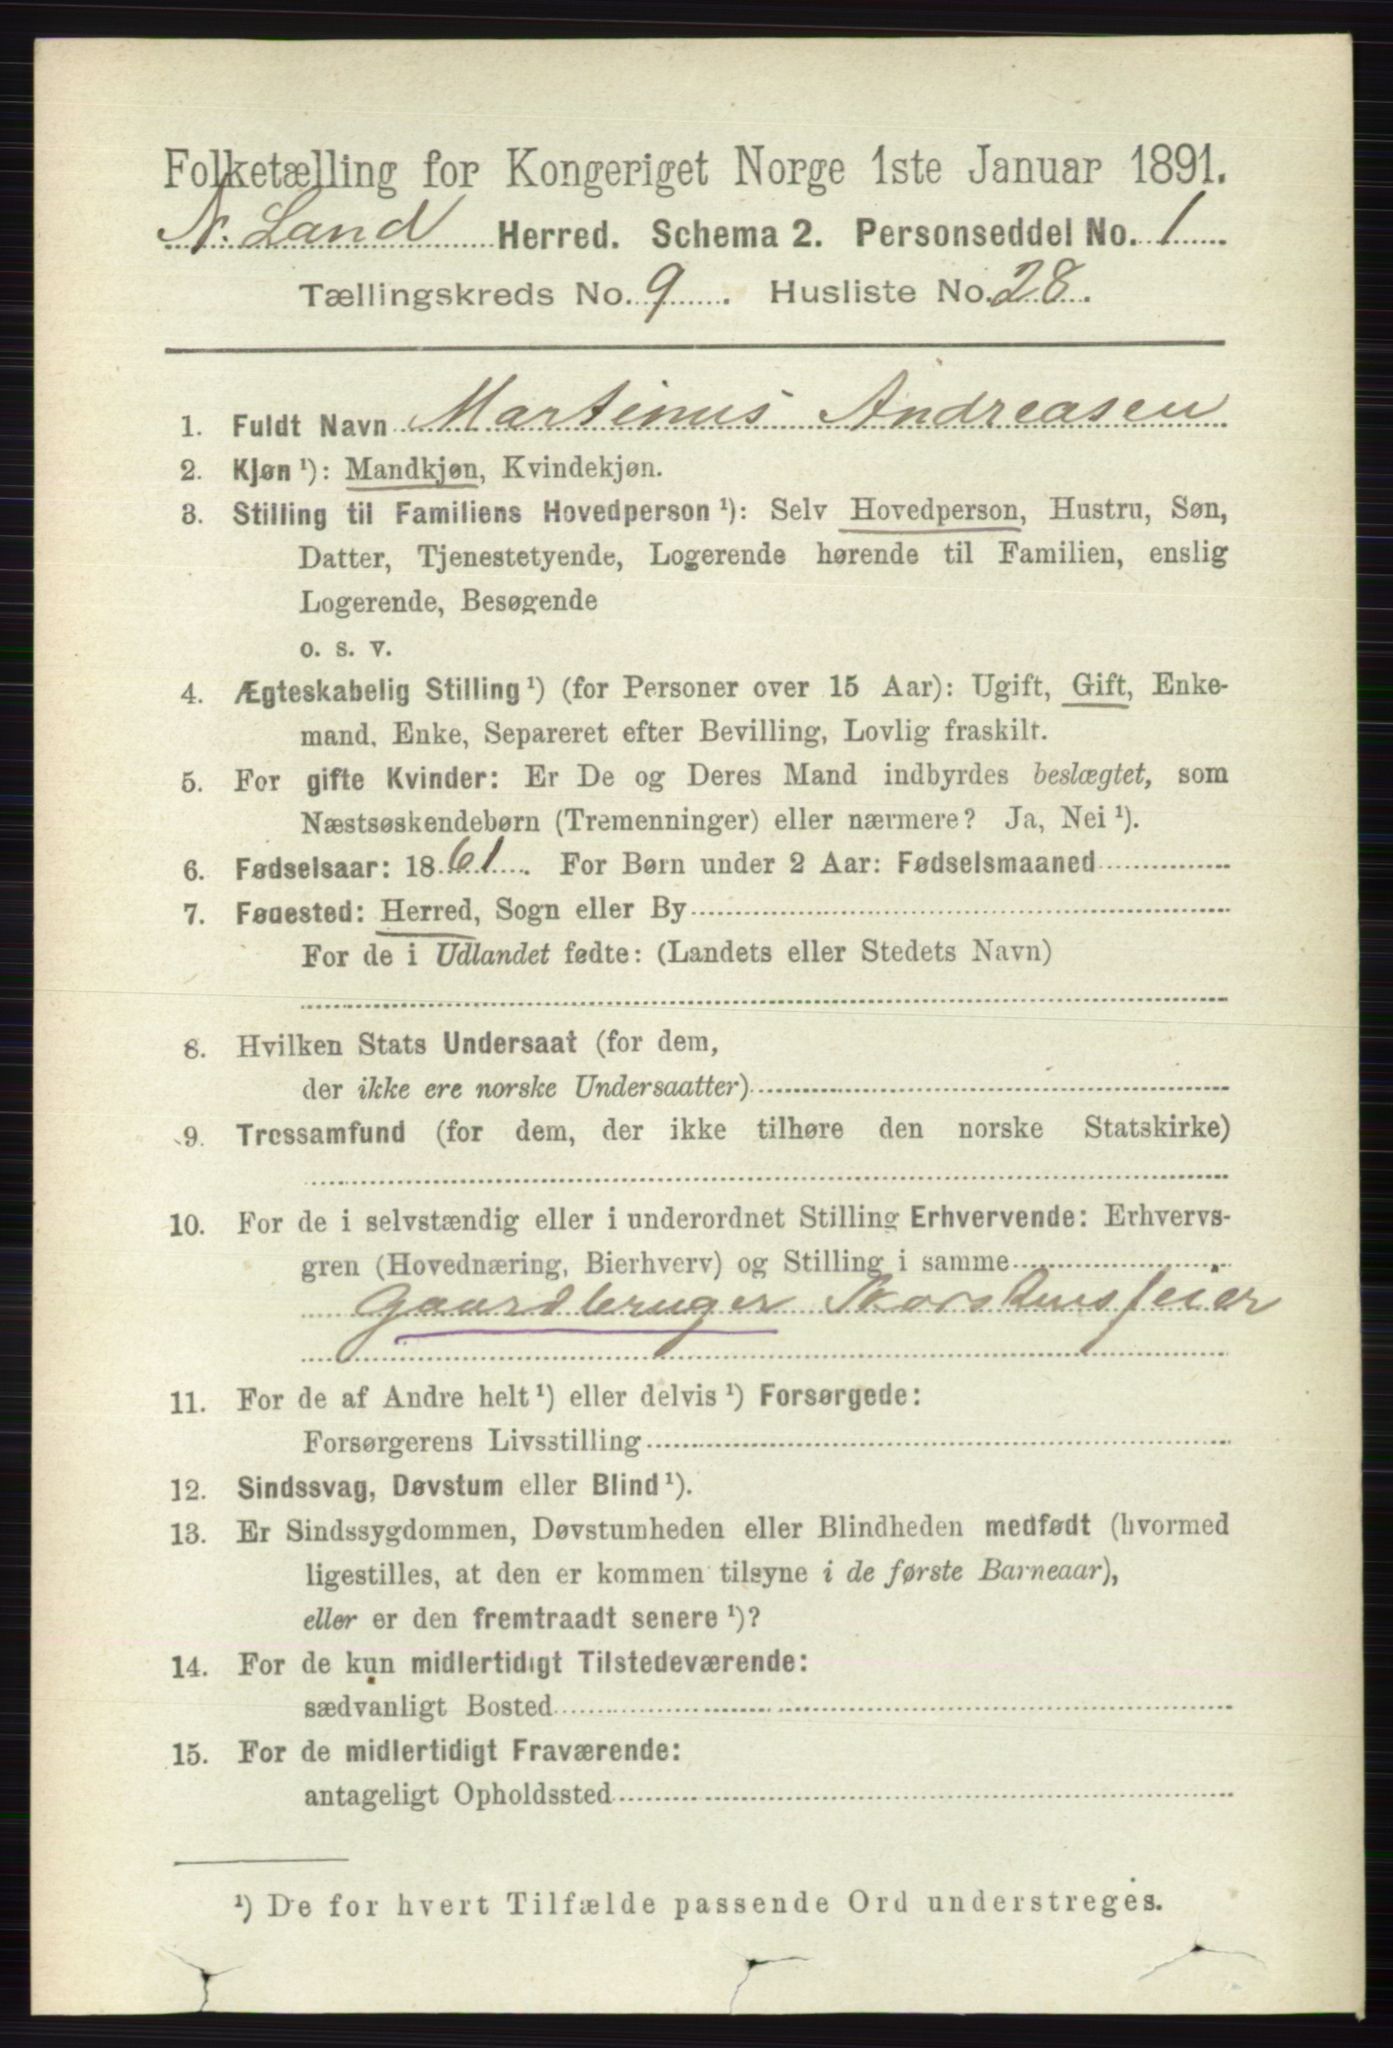 Folketælling for Kongeriget Norge 1ste Januar 1891.
N. Land Herred. Schema 2. Personseddel No. 1
Tællingskreds No. 9. Husliste No. 28.
1. Fuldt Navn Martinus Andreasen
2. Kjøn ¹): Mandkjøn, Kvindekjøn.
3. Stilling til Familiens Hovedperson ¹): Selv Hovedperson, Hustru, Søn,
Datter, Tjenestetyende, Logerende hørende til Familien, enslig
Logerende, Besøgende
o. s. v.
4. Ægteskabelig Stilling ¹) (for Personer over 15 Aar): Ugift, Gift, Enke-
mand, Enke, Separeret efter Bevilling, Lovlig fraskilt.
5. For gifte Kvinder: Er De og Deres Mand indbyrdes beslægtet, som
Næstsøskendebørn (Tremenninger) eller nærmere? Ja, Nei ¹).
6. Fødselsaar: 1861. For Børn under 2 Aar: Fødselsmaaned
7. Fødested: Herred, Sogn eller By
For de i Udlandet fødte: (Landets eller Stedets Navn)
8. Hvilken Stats Undersaat (for dem,
der ikke ere norske Undersaatter)
9. Trossamfund (for dem, der ikke tilhøre den norske Statskirke)
10. For de i selvstændig eller i underordnet Stilling Erhvervende: Erhvervs-
gren (Hovednæring, Bierhverv) og Stilling i samme
Gaardbruger Skorstensfeier
11. For de af Andre helt ¹) eller delvis ¹) Forsørgede:
Forsørgerens Livsstilling
12. Sindssvag, Døvstum eller Blind ¹).
13. Er Sindssygdommen, Døvstumheden eller Blindheden medfødt (hvormed
ligestilles, at den er kommen tilsyne i de første Barneaar),
eller er den fremtraadt senere ¹)?
14. For de kun midlertidigt Tilstedeværende:
sædvanligt Bosted
15. For de midlertidigt Fraværende:
antageligt Opholdssted
¹) De for hvert Tilfælde passende Ord understreges.